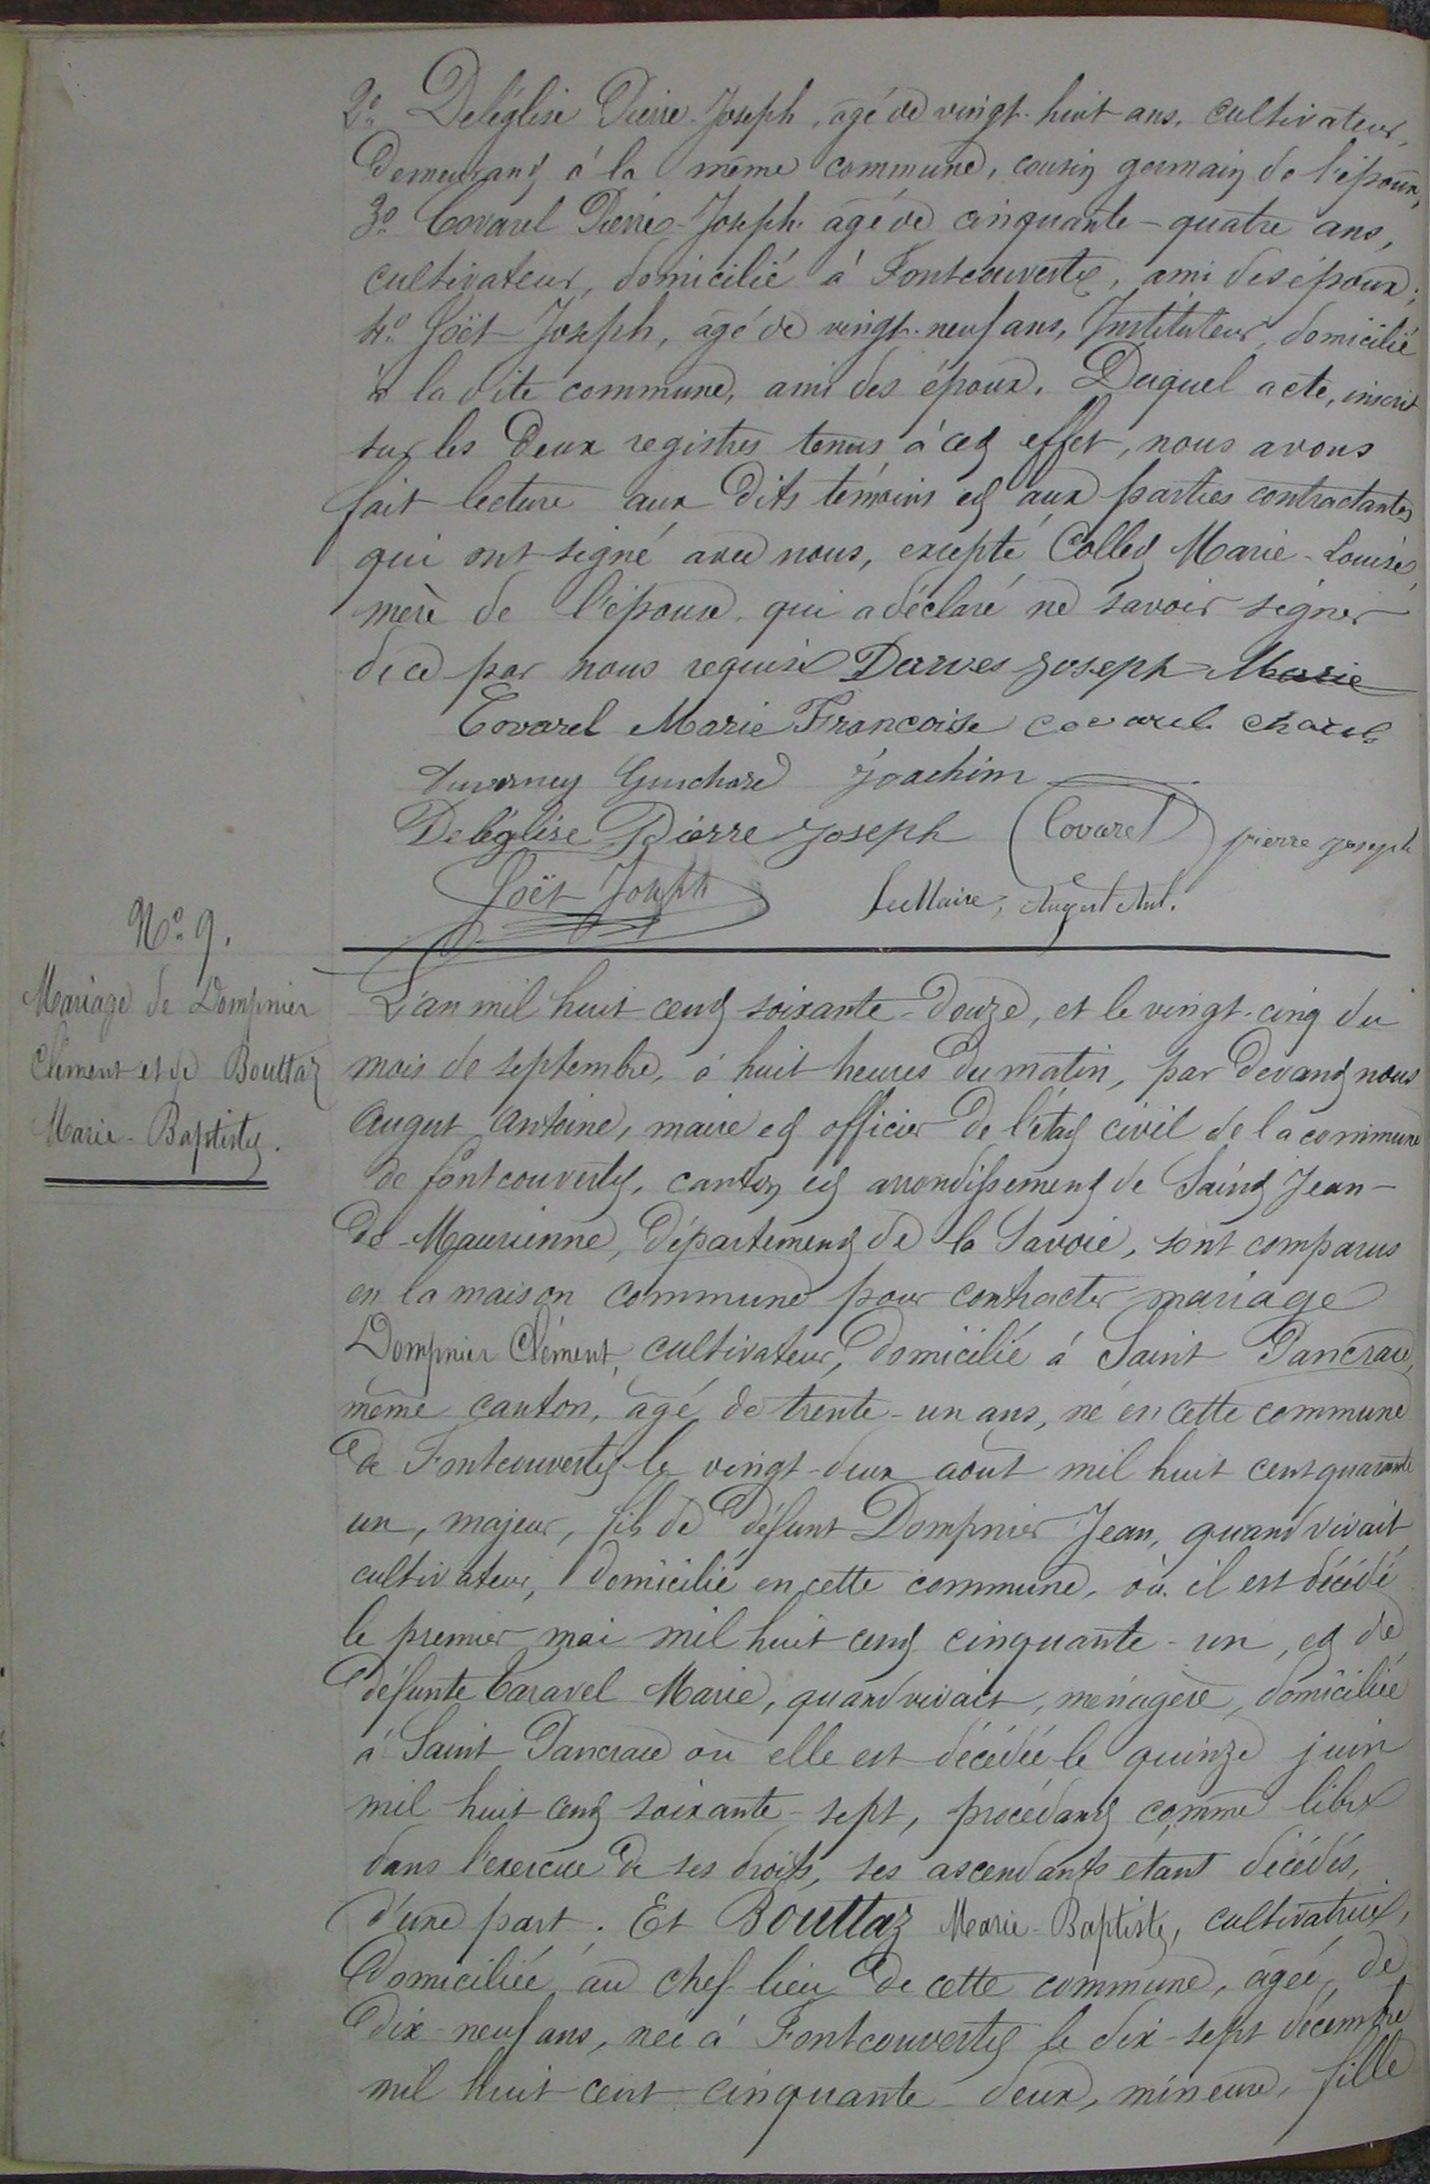 2° Deléglise Pierre-Joseph, âgé de vingt-huit ans, cultivateur,
demeurant à la même commune, cousin germain de l'époux,
3° Covarel Pierre-Joseph âgé de cinquante-quatre ans,
cultivateur, domicilié à Fontcouverte, ami des époux;
4° Joët Joseph, âgé de vingt-neuf ans, Instituteur, domicilié
à la dite commune, ami des époux. Duquel acte, inscrit
sur les deux registres tenus à cet effet, nous avons
fait lecture aux dits témoins et aux parties contractantes
qui ont signé avec nous, excepté Collet Marie-Louise,
mère de l'épouse qui a déclaré ne savoir signer
de ce par nous requise Darves Joseph-Marie
Covarel Marie Françoise covarel
Duverney Guichard Joachim
Deléglise Pierre Joseph Covarel pierre joseph
Joët Joseph Le Maire, Augert Ant.
N° 9.
Mariage de Dompnier
Clément et de Bouttaz
Marie-Baptiste.
L'an mil huit cent soixante-douze, et le vingt-cinq du
mois de septembre, à huit heures du matin, par devant nous
Augert Antoine, maire et officier de l'état civil de la commune
de fontcouverte, canton et arrondissement de Saint Jean-
de-Maurienne, département de la Savoie, sont comparus
en la maison commune pour contracter mariage
Dompnier Clément, cultivateur, domicilié à Saint Pancrace,
même canton, âgé de trente-un ans, né en cette commune
de Fontcouverte le vingt-deux août mil huit cent quarante
un, majeur, fils de défunt Dompnier Jean, quand vivait
cultivateur, domicilié en cette commune, où il est décédé
le premier mai mil huit cent cinquante-un, et de
défunte Caravel Marie, quand vivait, ménagère, domiciliée
à Saint Pancrace où elle est décédée le quinze juin
mil huit cent soixante-sept, procédant comme libre
dans l'exercice de ses droits, ses ascendants étant décédés,
d'une part. Et Bouttaz Marie-Baptiste, cultivatrice,
domiciliée au chef-lieu de cette commune, âgée de
dix-neuf ans, née à Fontcouverte le dix-sept décembre
mil huit cent cinquante-deux, mineure, fille